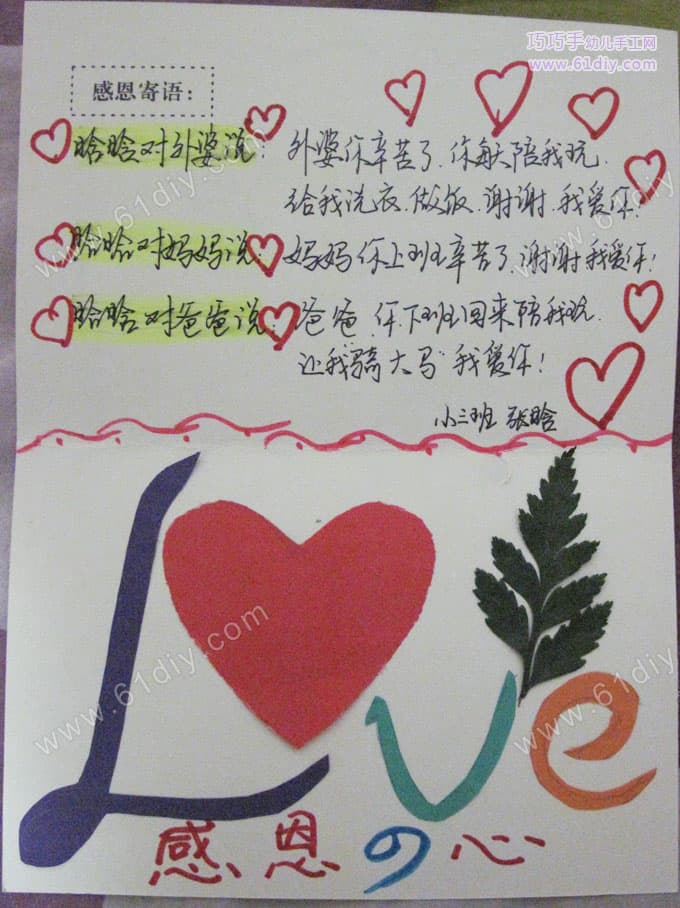 巧巧手幼儿手工网
www.61diy.com
感恩寄语:
晗晗对外婆说: 外婆你辛苦了.你每天陪我玩.
给我洗衣.做饭.谢谢.我爱你!
晗晗对妈妈说: 妈妈你上班辛苦了谢谢我爱你!
晗晗对爸爸说: 爸爸.你下班回来陪我玩.
让我骑大马 我爱你!
小三班 张晗
www.61diy.com
Love
感恩の心